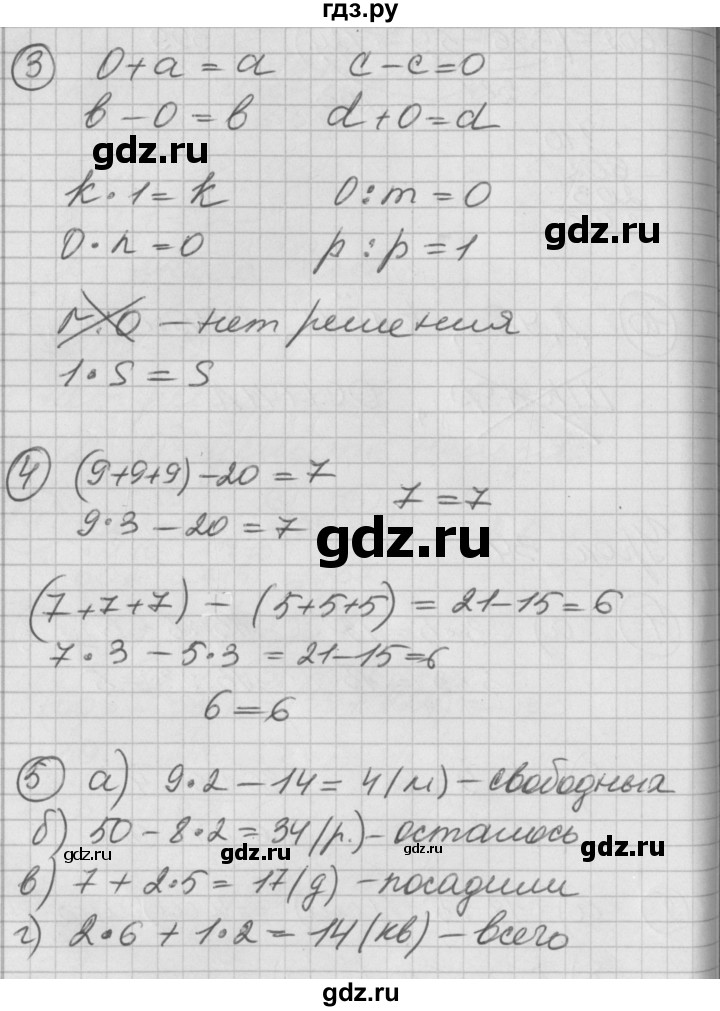 гдз.ру
3 0+a=a c-c=0
в-0=в d+0=d
gdz.ru
k·1=k 0:m=0
gdz.ru
0·n=0 p:p=1
r:0 — нет решения
1·s=s
4 (9+9+9)-20=7
7=7
9·3-20=7
gdz.ru
(7+7+7)-(5+5+5)=21-15=6
7·3-5·3=21-15=6
6=6
5 а) 9·2-14=4(м)-свободных
б) 50-8·2=34(р.)-осталось
gdz.ru gdz.ru gdz.ru gdz.ru
в) 7+2·5=17(д)-посадили
г) 2·6+1·2=14(кв)-всего
gdz.ru
gdz.ru